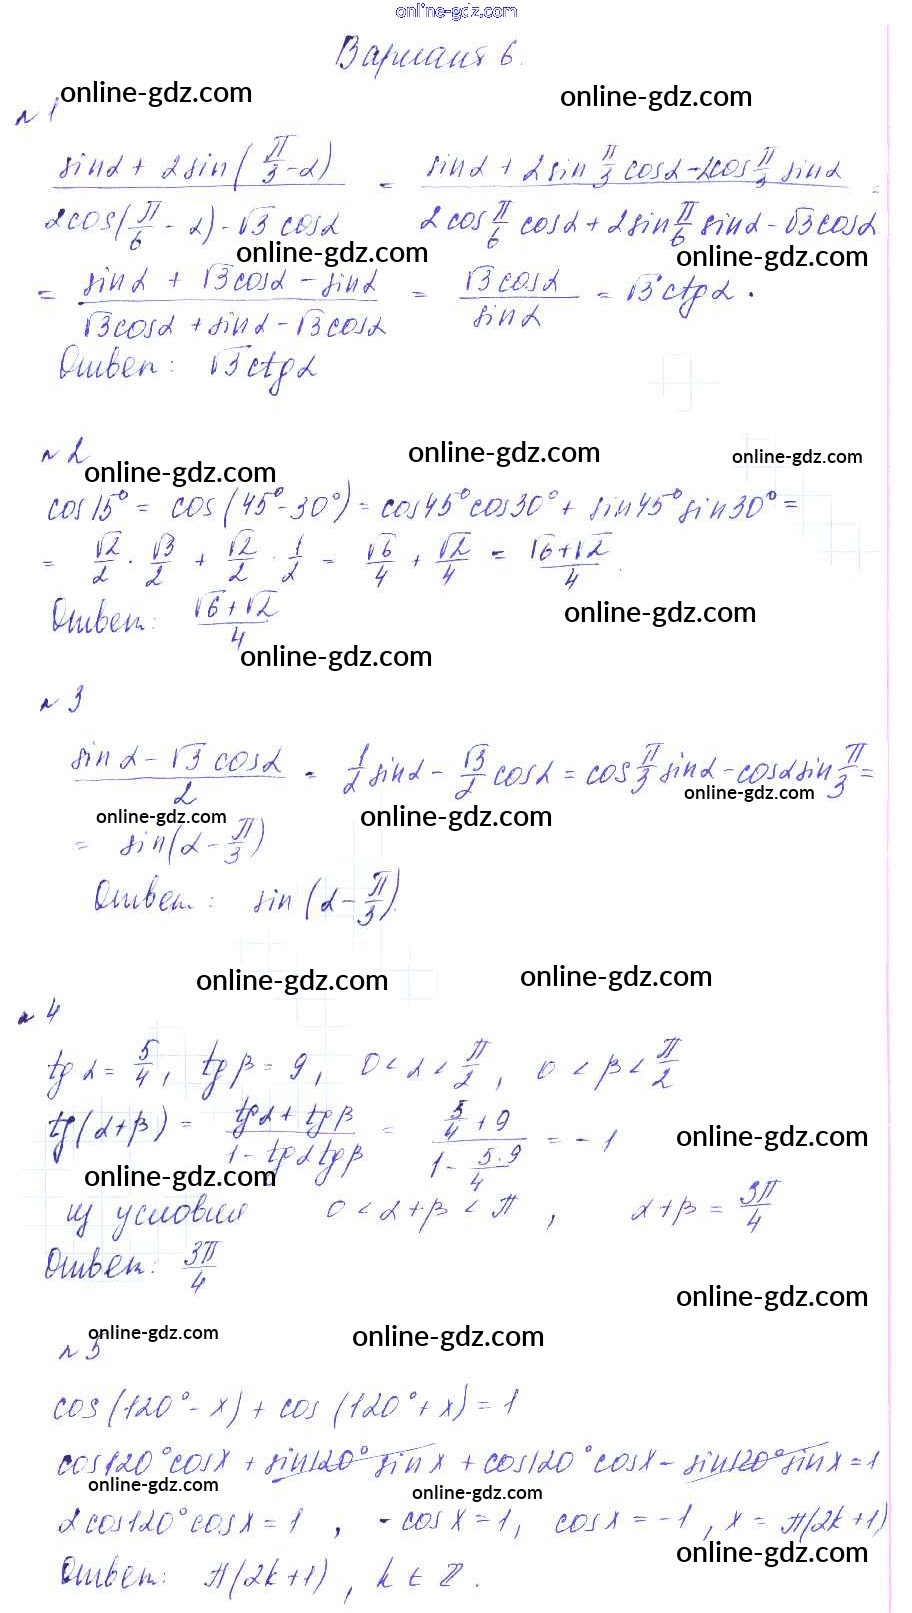 online-gdz.com
Вариант 6.
online-gdz.com online-gdz.com
№ 1
(sinα + 2sin(π/3 - α)) / (2cos(π/6 - α) - √3 cosα) = (sinα + 2sin π/3 cosα - 2cos π/3 sinα) / (2cos π/6 cosα + 2sin π/6 sinα - √3cosα) =
online-gdz.com online-gdz.com
= (sinα + √3cosα - sinα) / (√3cosα + sinα - √3cosα) = √3cosα / sinα = √3ctgα.
Ответ: √3ctgα
№ 2
online-gdz.com online-gdz.com online-gdz.com
cos15° = cos(45°-30°) = cos45°cos30° + sin45°sin30° =
= √2/2 · √3/2 + √2/2 · 1/2 = √6/4 + √2/4 = (√6+√2)/4.
Ответ: (√6+√2)/4
online-gdz.com
online-gdz.com
№ 3
(sinα - √3cosα)/2 = 1/2 sinα - √3/2 cosα = cos π/3 sinα - cosα sin π/3 =
online-gdz.com online-gdz.com online-gdz.com
= sin(α - π/3)
Ответ: sin(α - π/3).
online-gdz.com online-gdz.com
№ 4
tgα = 5/4, tgβ = 9, 0 < α < π/2, 0 < β < π/2
tg(α+β) = (tgα + tgβ)/(1 - tgαtgβ) = (5/4 + 9)/(1 - 5·9/4) = -1
online-gdz.com
online-gdz.com
из условия 0 < α+β < π, α+β = 3π/4
Ответ: 3π/4
online-gdz.com
online-gdz.com online-gdz.com
№ 5
cos(120°-x) + cos(120°+x) = 1
cos120°cosx + sin120° sinx + cos120°cosx - sin120°sinx = 1
online-gdz.com online-gdz.com
2cos120°cosx = 1, -cosx = 1, cosx = -1, x = π(2k+1)
online-gdz.com
Ответ: π(2k+1), k ∈ Z.